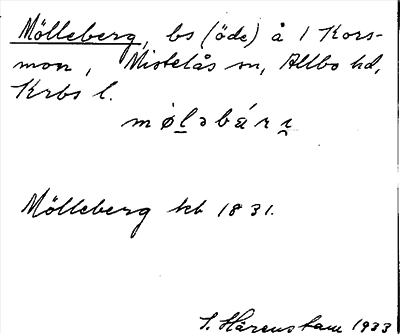 Mölleberg, bs (öde) å 1 Kors-
mon, Mistelås sn, Allbo hd,
Krbs l.
møləbærɪ
Mölleberg kb 1831.
S. Härenstam 1933